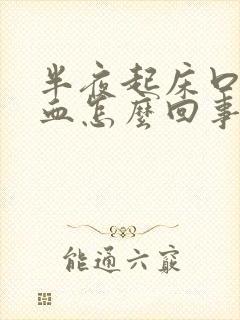 半夜起床口
血怎麼回事
能通六竅